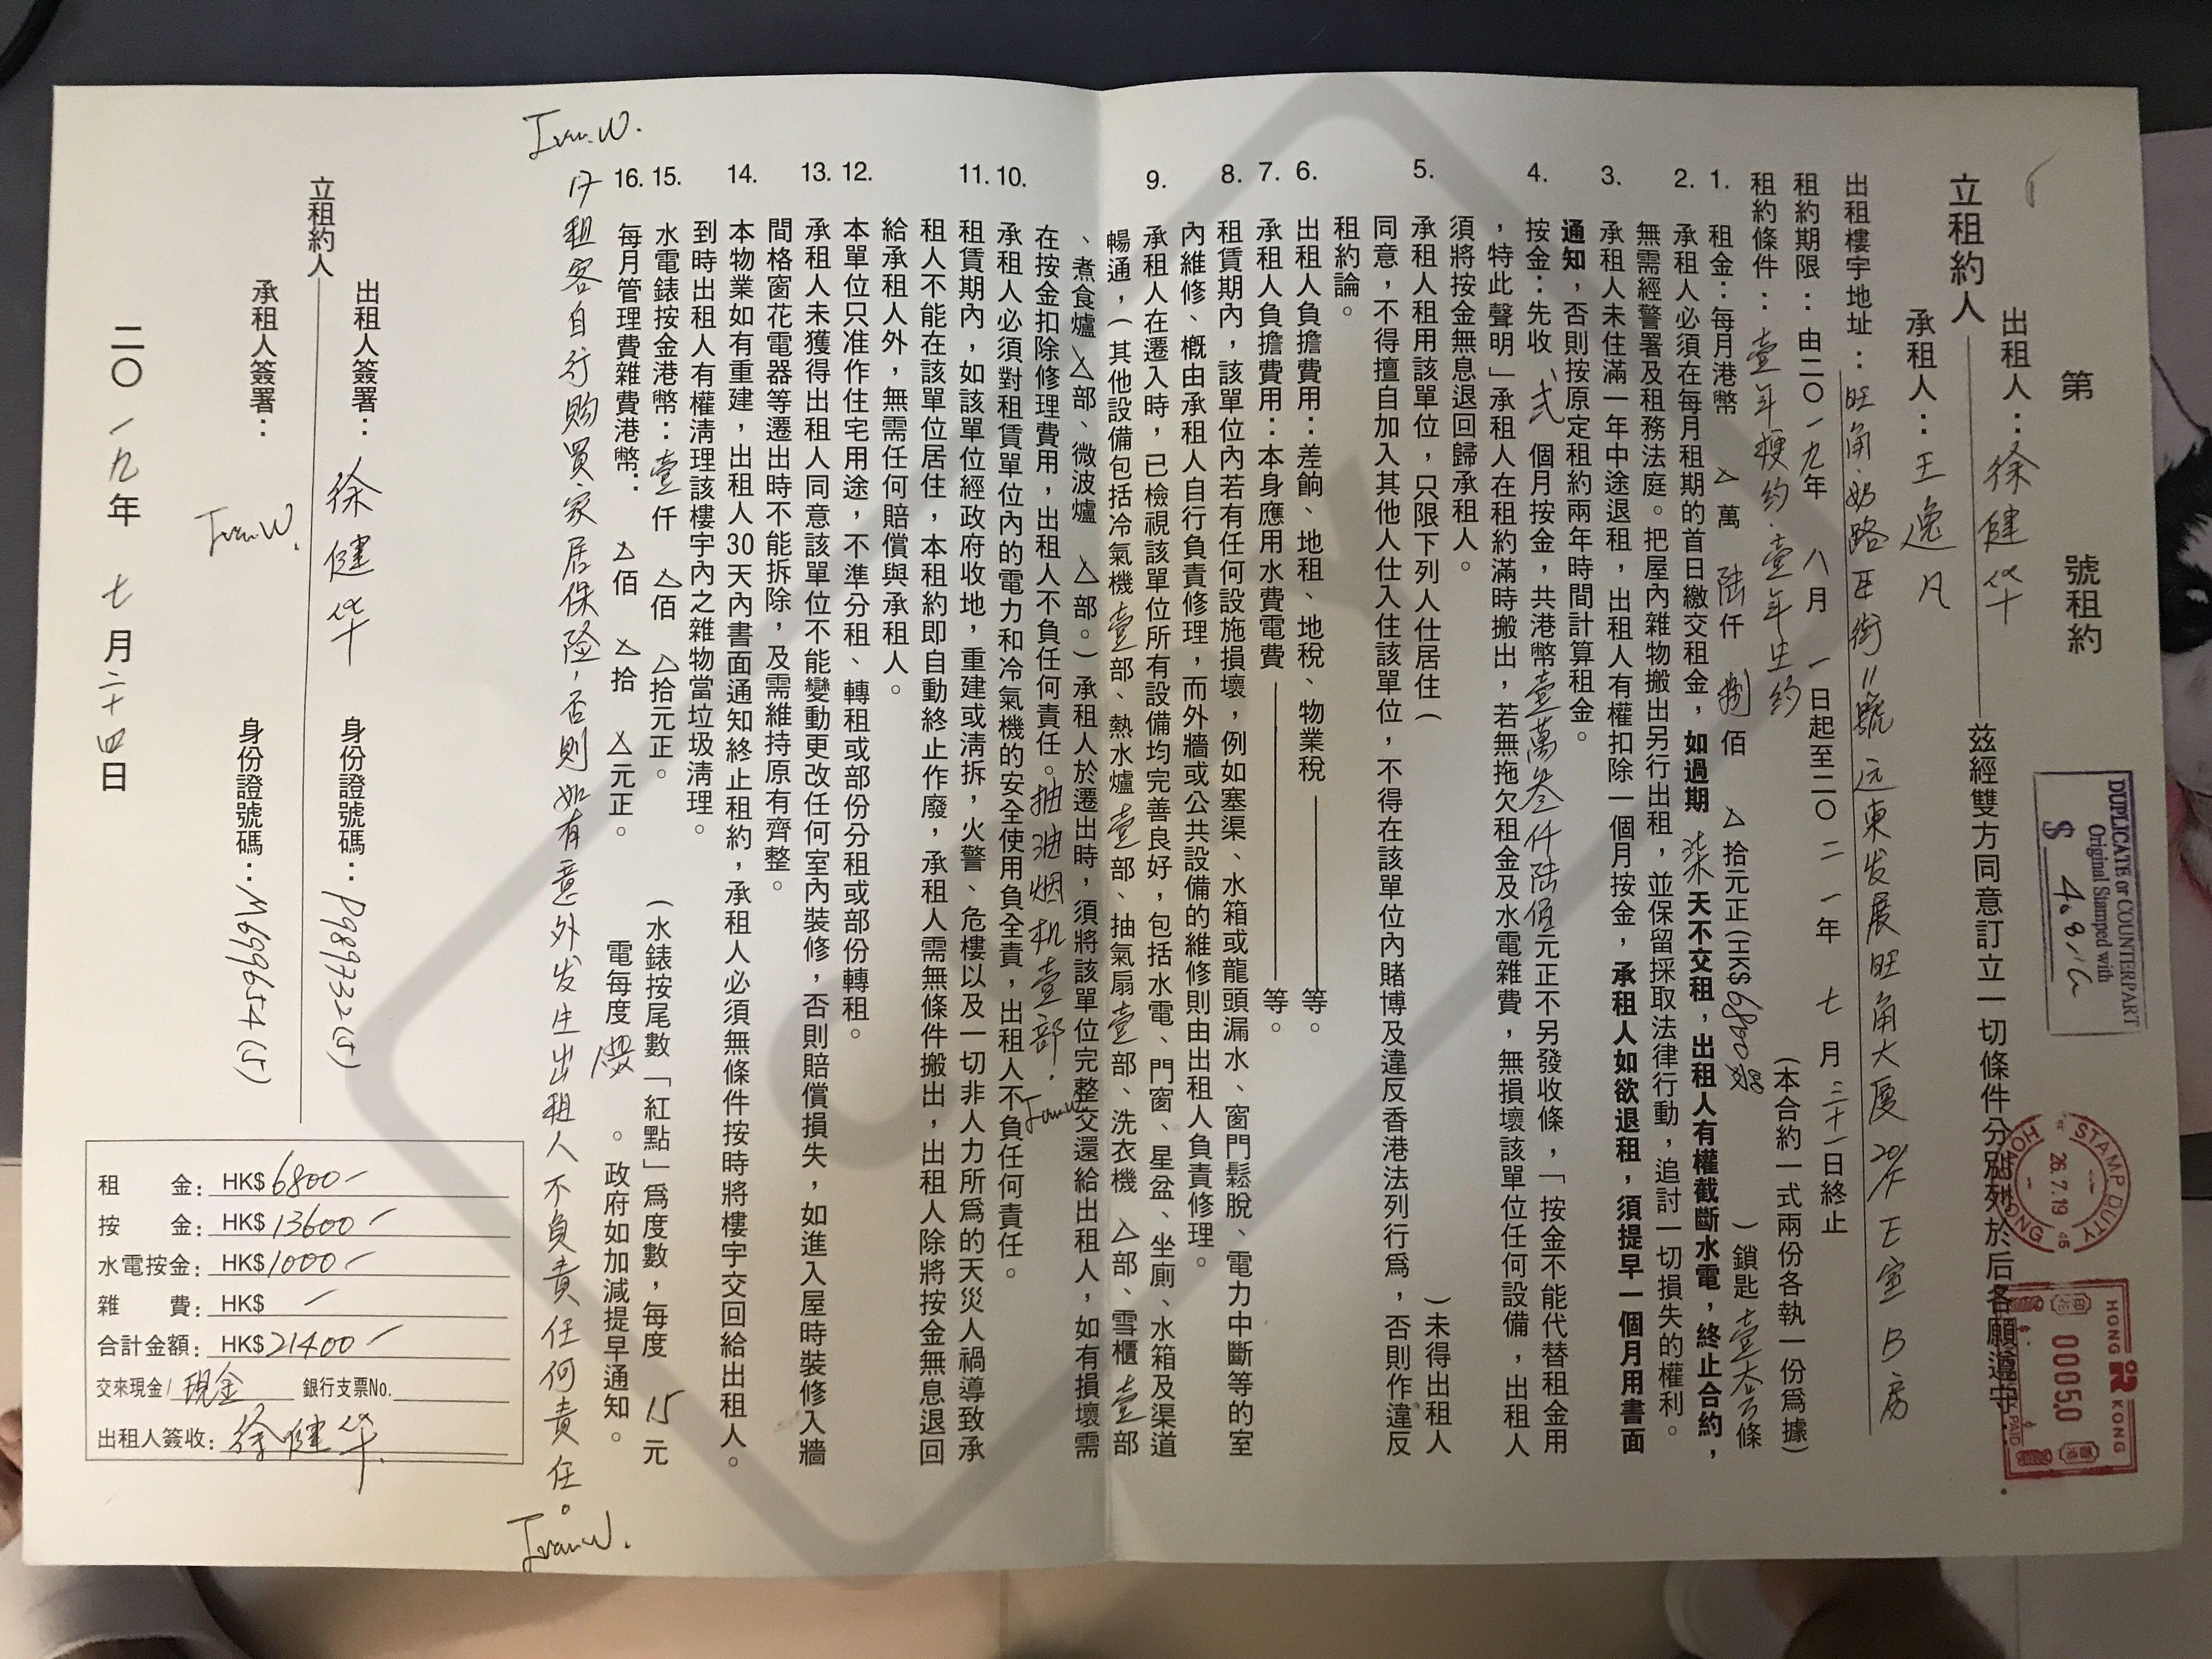 第 號租約
DUPLICATE or COUNTERPART
Original Stamped with
$
STAMP DUTY
26.7.19
HONG KONG
HONG KONG
00050
PAID
立租約人
出租人：徐健华
承租人：王逸凡
茲經雙方同意訂立一切條件分別列於后各願遵守．
出租樓宇地址：旺角．奶路臣街11號 远東发展旺角大厦 20/F E室 B房
租約期限：由二〇一九年 八月 一日起至二〇二一年 七月 三十一日終止
租約條件：壹年梗約．壹年生約 (本合約一式兩份各執一份爲據)
1. 租金：每月港幣 △萬 陸仟 捌佰 △拾元正(HK$6800 ) 鎖匙壹 條
2. 承租人必須在每月租期的首日繳交租金，如過期 柒 天不交租，出租人有權截斷水電，終止合約，
無需經警署及租務法庭。把屋內雜物搬出另行出租，並保留採取法律行動，追討一切損失的權利。
3. 承租人未住滿一年中途退租，出租人有權扣除一個月按金，承租人如欲退租，須提早一個月用書面
通知，否則按原定租約兩年時間計算租金。
4. 按金：先收 弍 個月按金，共港幣壹萬叁仟陸佰元正不另發收條，「按金不能代替租金用
，特此聲明」承租人在租約滿時搬出，若無拖欠租金及水電雜費，無損壞該單位任何設備，出租人
須將按金無息退回歸承租人。
5. 承租人租用該單位，只限下列人仕居住 ( ) 未得出租人
同意，不得擅自加入其他人仕入住該單位，不得在該單位內賭博及違反香港法列行爲，否則作違反
租約論。
6. 出租人負擔費用：差餉、地租、地稅、物業稅 等。
7. 承租人負擔費用：本身應用水費電費 等。
8. 租賃期內，該單位內若有任何設施損壞，例如塞渠、水箱或龍頭漏水、窗門鬆脫、電力中斷等的室
內維修、概由承租人自行負責修理，而外牆或公共設備的維修則由出租人負責修理。
9. 承租人在遷入時，已檢視該單位所有設備均完善良好，包括水電、門窗、星盆、坐廁、水箱及渠道
暢通，(其他設備包括冷氣機壹部、熱水爐壹部、抽氣扇壹部、洗衣機 △部、雪櫃 壹部
、煮食爐△部、微波爐 △部。) 承租人於遷出時，須將該單位完整交還給出租人，如有損壞需
在按金扣除修理費用，出租人不負任何責任。抽油烟机壹部．Ivan.W
10. 承租人必須對租賃單位內的電力和冷氣機的安全使用負全責，出租人不負任何責任。
11. 租賃期內，如該單位經政府收地，重建或清拆，火警、危樓以及一切非人力所爲的天災人禍導致承
租人不能在該單位居住，本租約即自動終止作廢，承租人需無條件搬出，出租人除將按金無息退回
給承租人外，無需任何賠償與承租人。
12. 本單位只准作住宅用途，不準分租、轉租或部份分租或部份轉租。
13. 承租人未獲得出租人同意該單位不能變動更改任何室內裝修，否則賠償損失，如進入屋時裝修入牆
間格窗花電器等遷出時不能拆除，及需維持原有齊整。
14. 本物業如有重建，出租人30天內書面通知終止租約，承租人必須無條件按時將樓宇交回給出租人。
到時出租人有權清理該樓宇內之雜物當垃圾清理。
15. 水電錶按金港幣：壹仟 △佰 △拾元正。 (水錶按尾數「紅點」爲度數，每度 15 元
16. 每月管理費雜費港幣： △佰 △拾 △元正。 電每度 。政府如加減提早通知。
17 租客自行购買家居保险，否則如有意外发生出租人不負責任何責任。
Ivan.W.
Ivan.W.
立租約人
出租人簽署：徐健华 身份證號碼：P989732(5)
承租人簽署：Ivan.W. 身份證號碼：M6999654(5)
二〇一九年 七月二十四日
租 金：HK$ 6800-
按 金：HK$ 13600-
水電按金：HK$ 1000-
雜 費：HK$ -
合計金額：HK$ 21400-
交來現金/ 現金 銀行支票No.
出租人簽收：徐健华